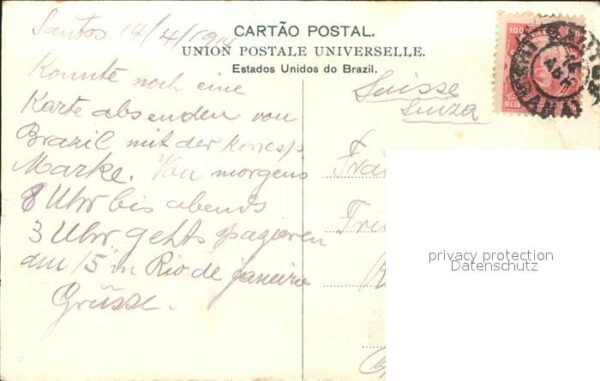 Santos 14/4/19
CARTÃO POSTAL.
UNION POSTALE UNIVERSELLE.
Estados Unidos do Brazil.
Konnte noch eine
Karte absenden von
Brazil mit der Korresp
Marke. Von morgens
8 Uhr bis abends
3 Uhr gehts spazieren
am 15 in Rio de janeiro
Grüsse.
Suisse
Suiza
100
privacy protection
Datenschutz